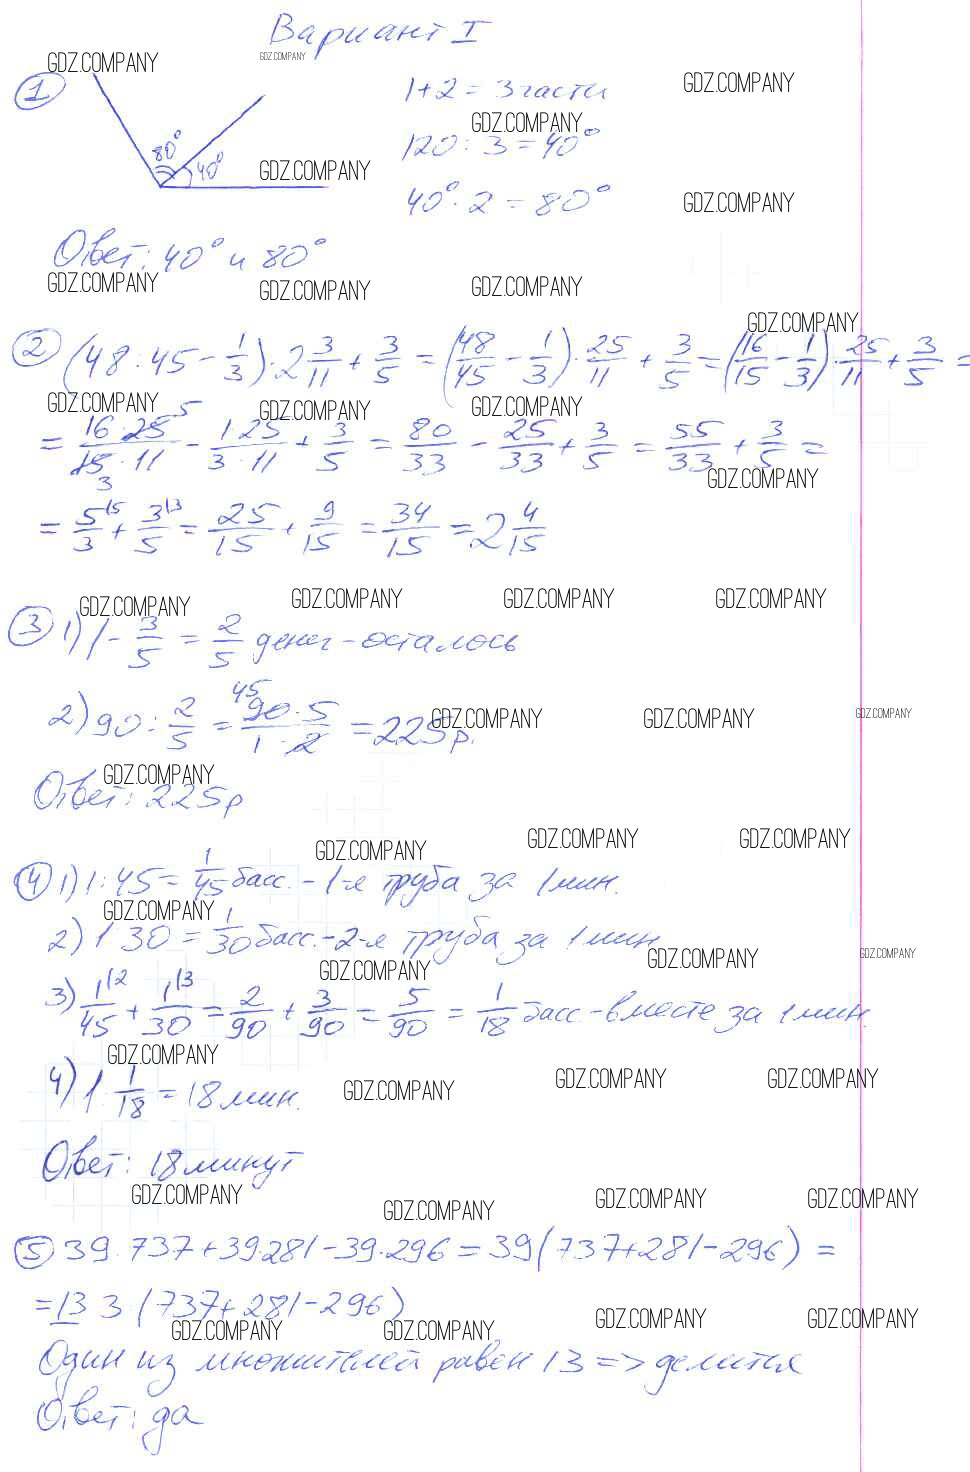 Вариант I
GDZ.COMPANY GDZ.COMPANY
1 1+2 = 3 части GDZ.COMPANY
GDZ.COMPANY
80° 40° 120 : 3 = 40°
GDZ.COMPANY
40° · 2 = 80° GDZ.COMPANY
Ответ: 40° и 80°
GDZ.COMPANY GDZ.COMPANY GDZ.COMPANY
GDZ.COMPANY
2 (48 : 45 - 1/3) · 2 3/11 + 3/5 = (48/45 - 1/3) · 25/11 + 3/5 = (16/15 - 1/3) · 25/11 + 3/5 =
GDZ.COMPANY GDZ.COMPANY GDZ.COMPANY
= 16 · 25 5/15 · 11 3 - 1 · 25/3 · 11 + 3/5 = 80/33 - 25/33 + 3/5 = 55/33 + 3/5 =
GDZ.COMPANY
= 5\5/3 + 3\3/5 = 25/15 + 9/15 = 34/15 = 2 4/15
GDZ.COMPANY GDZ.COMPANY GDZ.COMPANY GDZ.COMPANY
3 1) 1 - 3/5 = 2/5 денег - осталось
2) 90 : 2/5 = 45 90 · 5/1 · 2 = 225 р.
GDZ.COMPANY GDZ.COMPANY GDZ.COMPANY
GDZ.COMPANY
Ответ: 225 р
GDZ.COMPANY GDZ.COMPANY GDZ.COMPANY
4 1) 1 : 45 = 1/45 басс. - 1-я труба за 1 мин.
GDZ.COMPANY
2) 1 30 = 1/30 басс. - 2-я труба за 1 мин
GDZ.COMPANY GDZ.COMPANY GDZ.COMPANY
3) 1\2/45 + 1\3/30 = 2/90 + 3/90 = 5/90 = 1/18 басс - вместе за 1 мин.
GDZ.COMPANY
4) 1 : 1/18 = 18 мин.
GDZ.COMPANY GDZ.COMPANY GDZ.COMPANY
Ответ: 18 минут
GDZ.COMPANY GDZ.COMPANY GDZ.COMPANY GDZ.COMPANY
5 39 · 737 + 39 · 281 - 39 · 296 = 39 (737 + 281 - 296) =
= 13 3 (737 + 281 - 296)
GDZ.COMPANY GDZ.COMPANY GDZ.COMPANY GDZ.COMPANY
Один из множителей равен 13 => делится
Ответ: да